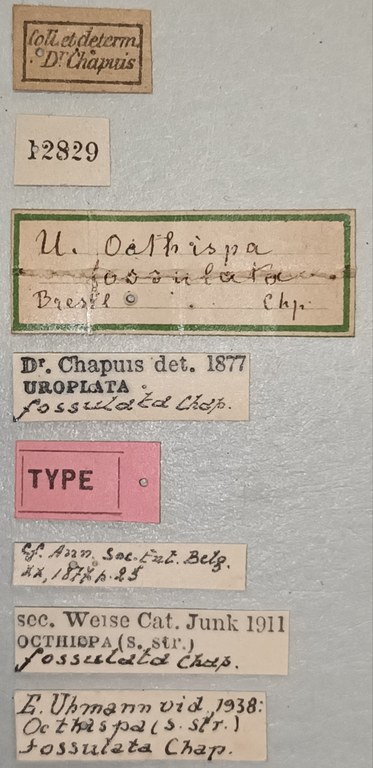 Coll. et determ.
Dr. Chapuis
12829
U. Octhispa
fossulata
Bresil Chp.
Dr. Chapuis det. 1877
UROPLATA
fossulata Chap.
TYPE
Cf. Ann. Soc. Ent. Belg.
XX, 1877 p. 25
sec. Weise Cat. Junk 1911
OCTHISPA (s. str.)
fossulata Chap.
E. Uhmann vid. 1938:
Octhispa (s. str.)
fossulata Chap.